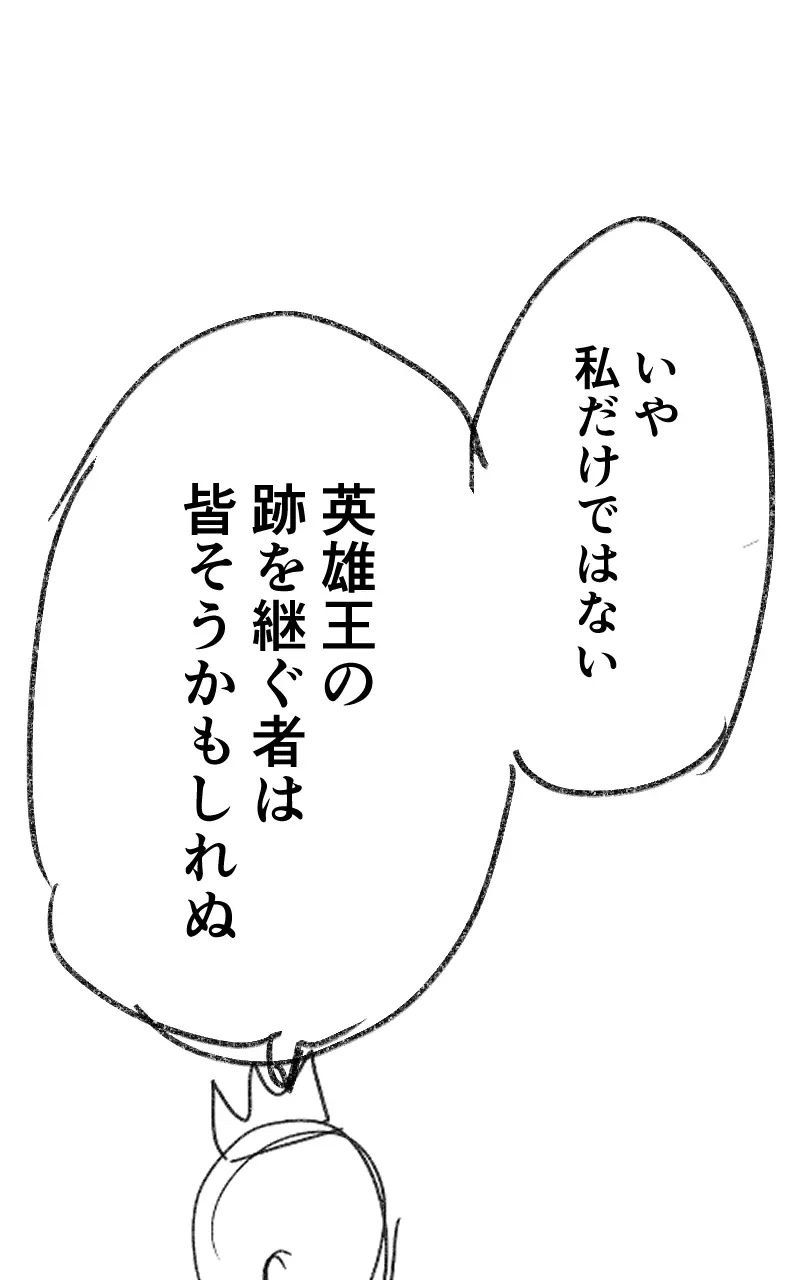 いや
私だけではない
英雄王の
跡を継ぐ者は
皆そうかもしれぬ